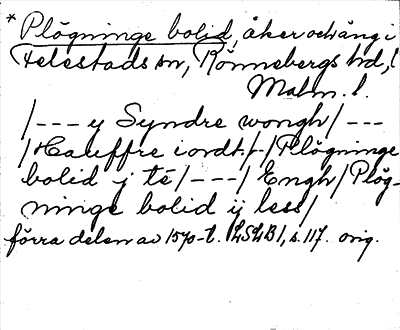 * Plögninge bolid, åker och äng i
Felestads sn, Rönnebergs hd,
Malm. l.
/--- y Syndre wongh/---
/Hauffre iordt+/ /Plögninge
bolid j té/---/ Engh/Plög-
ninge bolid ij less/
förra delen av 1570-t. LSLB1, s. 117. orig.